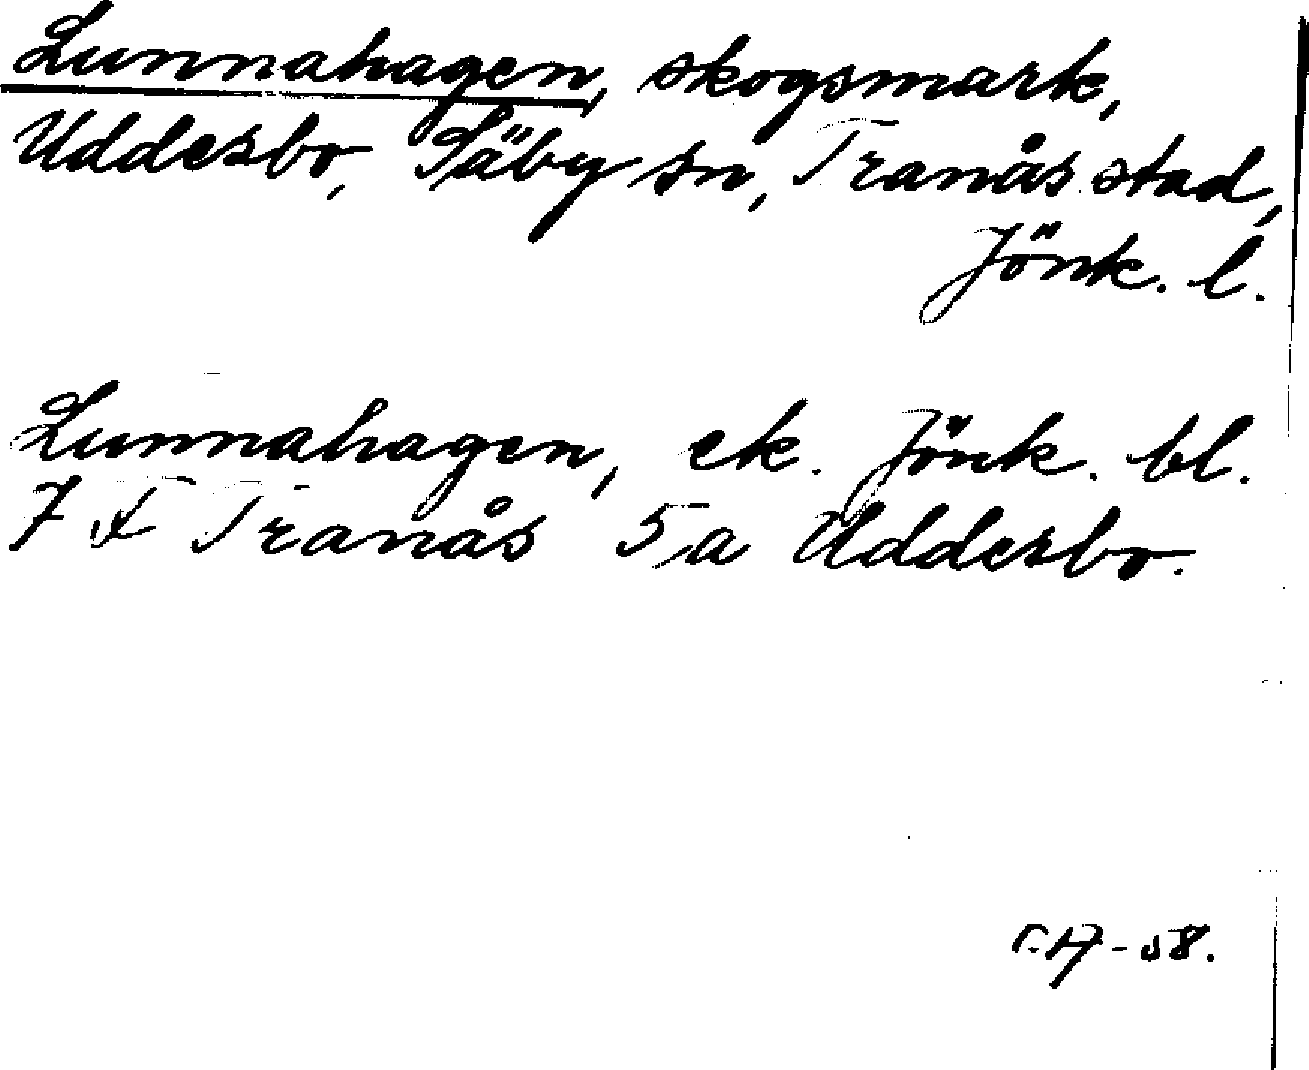 Lunnahagen, skogsmark,
Uddesbo, Säby sn, Tranås stad,
Jönk. l.
Lunnahagen, ek. Jönk. bl.
7 f Tranås 5 a Uddesbo.
-58.